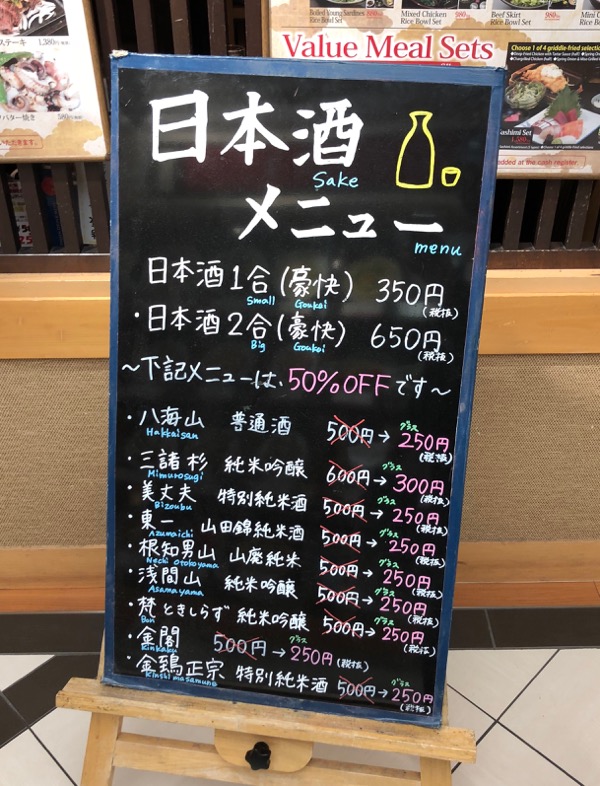 Boiled Young Sardines
Rice Bowl Set
Mixed Chicken
Rice Bowl Set
980
Beef Skirt
Rice Bowl Set
Mini
Value Meal Sets
Choose 1 of 4 griddle-fried selection
Sashimi Set
added at the cash register
ステーキ
1,380円
バター焼き
580円
いただきます。
日本酒
Sake
メニュー
menu
日本酒1合(豪快) 350円
Small Goukai (税抜)
・日本酒2合(豪快) 650円
Big Goukai (税抜)
〜下記メニューは、50%OFFです〜
・八海山 普通酒 500円→グラス250円
Hakkaisan (税抜)
・三諸杉 純米吟醸 600円→グラス300円
Mimurosugi (税抜)
・美丈夫 特別純米酒 500円→グラス250円
Bizoubu (税抜)
・東一 山田錦純米酒 500円→グラス250円
Azumaichi (税抜)
・根知男山 山廃純米 500円→グラス250円
Nechi Otokoyama (税抜)
・浅間山 純米吟醸 500円→グラス250円
Asamayama (税抜)
・梵 ときしらず 純米吟醸 500円→グラス250円
Bon (税抜)
・金閣 500円→グラス250円(税抜)
Kinkaku
・金鵄正宗 特別純米酒 500円→グラス250円
Kinshi masamune (税抜)